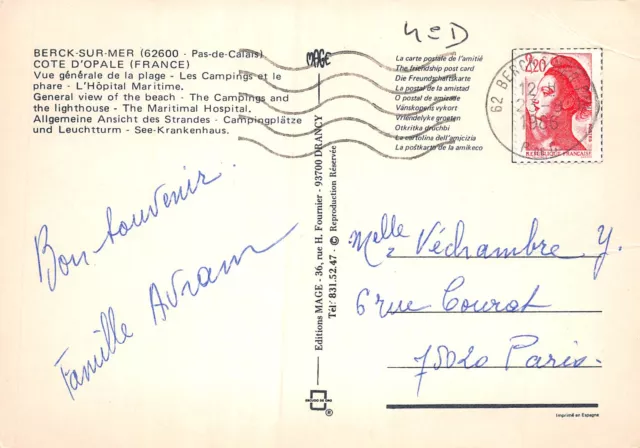 BERCK-SUR-MER (62600 - Pas-de-Calais)
COTE D'OPALE (FRANCE)
Vue générale de la plage - Les Campings et le
phare - L'Hôpital Maritime.
General view of the beach - The Campings and
the lighthouse - The Maritimal Hospital.
Allgemeine Ansicht des Strandes - Campingplätze
und Leuchtturm - See-Krankenhaus.
Bon souvenir.
Famille Avram
MAGE
Editions MAGE - 36, rue H. Fournier - 93700 DRANCY
Tél : 831.52.47 - © Reproduction Réservée
®
4e D
La carte postale de l'amitié
The friendship post card
Die Freundschaftskarte
La postal de la amistad
O postal de amizade
Vänskapens vykort
Vriendelyke groeten
Otkritka druchbi
La cartolina dell'amicizia
La poŝtkarto de la amikeco
2,20
REPUBLIQUE FRANÇAISE
62 BERCK
12
1986
Melle Véchambre Y.
6 rue Courat
75020 Paris.
Imprimé en Espagne